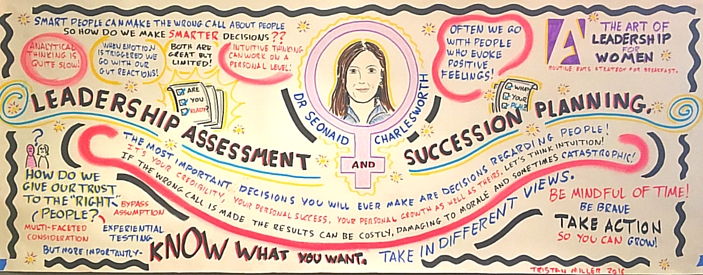 SMART PEOPLE CAN MAKE THE WRONG CALL ABOUT PEOPLE
SO HOW DO WE MAKE SMARTER DECISIONS??
ANALYTICAL
THINKING IS
QUITE SLOW!
WHEN EMOTION
IS TRIGGERED WE
GO WITH OUR
GUT REACTIONS!
BOTH ARE
GREAT BUT
LIMITED!
INTUITIVE THINKING
CAN WORK ON A
PERSONAL LEVEL!
OFTEN WE GO
WITH PEOPLE
WHO EVOKE
POSITIVE
FEELINGS!
THE ART OF
LEADERSHIP
FOR
WOMEN
ARE
YOU
READY?
DR SEONAID CHARLESWORTH
WHAT
YOUR
PLAN?
LEADERSHIP ASSESSMENT AND SUCCESSION PLANNING.
THE MOST IMPORTANT DECISIONS YOU WILL EVER MAKE ARE DECISIONS REGARDING PEOPLE!
IT'S YOUR CREDIBILITY, YOUR PERSONAL SUCCESS, YOUR PERSONAL GROWTH AS WELL AS THEIRS. LET'S THINK INTUITION!
IF THE WRONG CALL IS MADE THE RESULTS CAN BE COSTLY, DAMAGING TO MORALE AND SOMETIMES CATASTROPHIC!
HOW DO WE
GIVE OUR TRUST
TO THE "RIGHT"
PEOPLE?
BYPASS
ASSUMPTION
MULTI-FACETED
CONSIDERATION
EXPERIENTIAL
TESTING
BUT MORE IMPORTANTLY-
KNOW WHAT YOU WANT.
TAKE IN DIFFERENT VIEWS.
BE MINDFUL OF TIME!
BE BRAVE
TAKE ACTION
SO YOU CAN GROW!
TRISTAN MILLER 2016